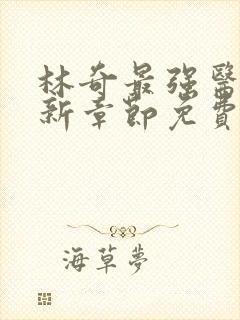 林奇最强醫
新章節免費
海草夢